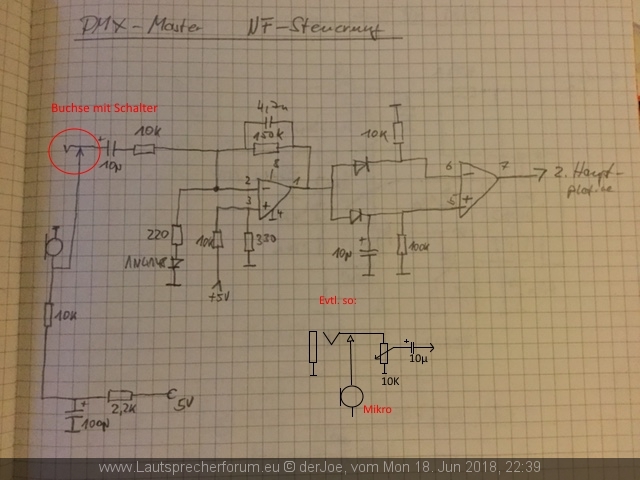 DMX-Master NF-Steuerung
Buchse mit Schalter
4,7n
150k
10k
10µ
10k
8
2
1
3
4
6
7
5
2. Haupt-
platine
220
1N4148
10k
330
+5V
10µ
100k
10k
Evtl. so:
10µ
10K
Mikro
2,2k
5V
100µ
www.Lautsprecherforum.eu © derJoe, vom Mon 18. Jun 2018, 22:39